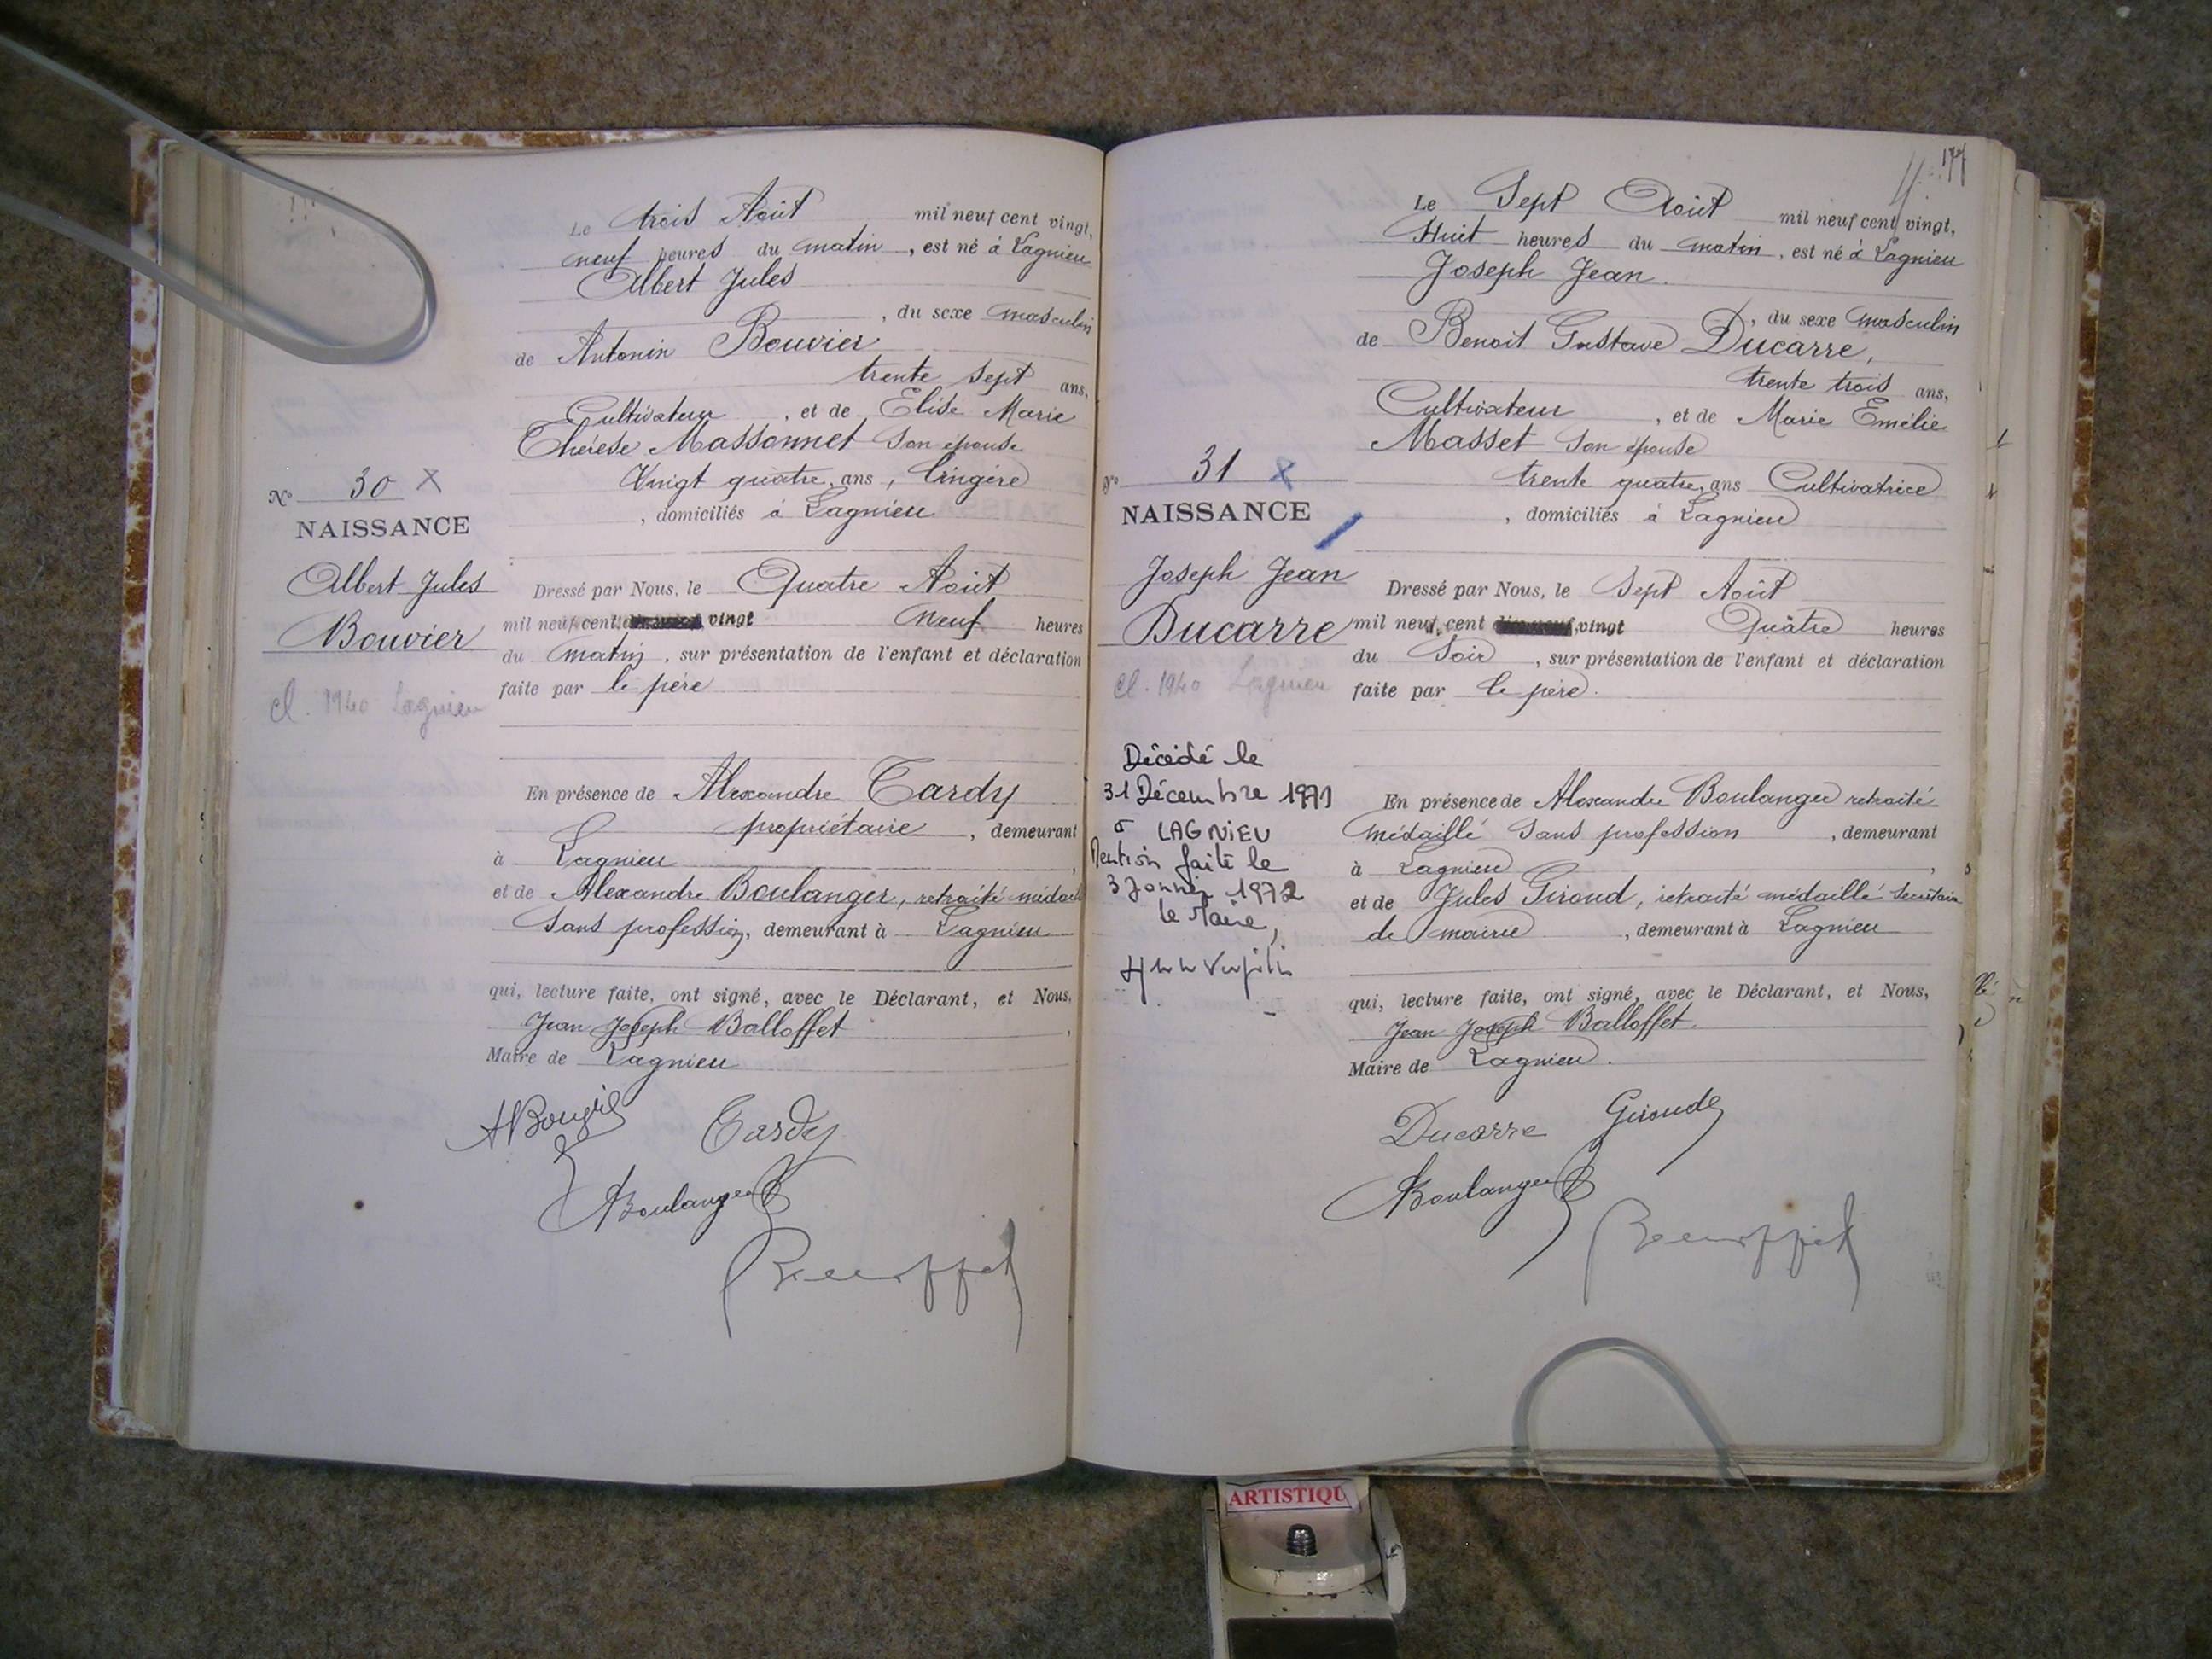 Le trois Août mil neuf cent vingt,
neuf heures du matin, est né à Lagnieu
Albert Jules
, du sexe masculin
de Antonin Bouvier
trente sept ans,
Cultivateur, et de Elise Marie
Thérèse Massonnet son épouse
Vingt quatre ans, lingère
, domiciliés à Lagnieu
N° 30 X
NAISSANCE
Albert Jules
Bouvier
cl. 1940 Lagnieu
Dressé par Nous, le Quatre Août
mil neuf cent vingt neuf heures
du matin, sur présentation de l'enfant et déclaration
faite par le père
En présence de Alexandre Tardy
propriétaire, demeurant
à Lagnieu,
et de Alexandre Boulanger, retraité
sans profession, demeurant à Lagnieu
qui, lecture faite, ont signé, avec le Déclarant, et Nous,
Jean Joseph Balloffet,
Maire de Lagnieu
Tardy
Boulanger
177
Le Sept Août mil neuf cent vingt,
Huit heures du matin, est né à Lagnieu
Joseph Jean
, du sexe masculin
de Benoit Gustave Ducarre,
trente trois ans,
Cultivateur, et de Marie Emélie
Masset son épouse
trente quatre ans Cultivatrice
, domiciliés à Lagnieu
N° 31 X
NAISSANCE
Joseph Jean
Ducarre
cl. 1940 Lagnieu
Décédé le
31 Décembre 1971
à LAGNIEU
Mention faite le
3 Janvier 1972
le Maire,
Dressé par Nous, le Sept Août
mil neuf cent vingt Quatre heures
du Soir, sur présentation de l'enfant et déclaration
faite par le père.
En présence de Alexandre Boulanger retraité
médaillé sans profession, demeurant
à Lagnieu,
et de Jules Giroud, retraité médaillé secrétaire
de mairie, demeurant à Lagnieu
qui, lecture faite, ont signé, avec le Déclarant, et Nous,
Jean Joseph Balloffet.
Maire de Lagnieu.
Ducarre Giroud
Boulanger
ARTISTIQU